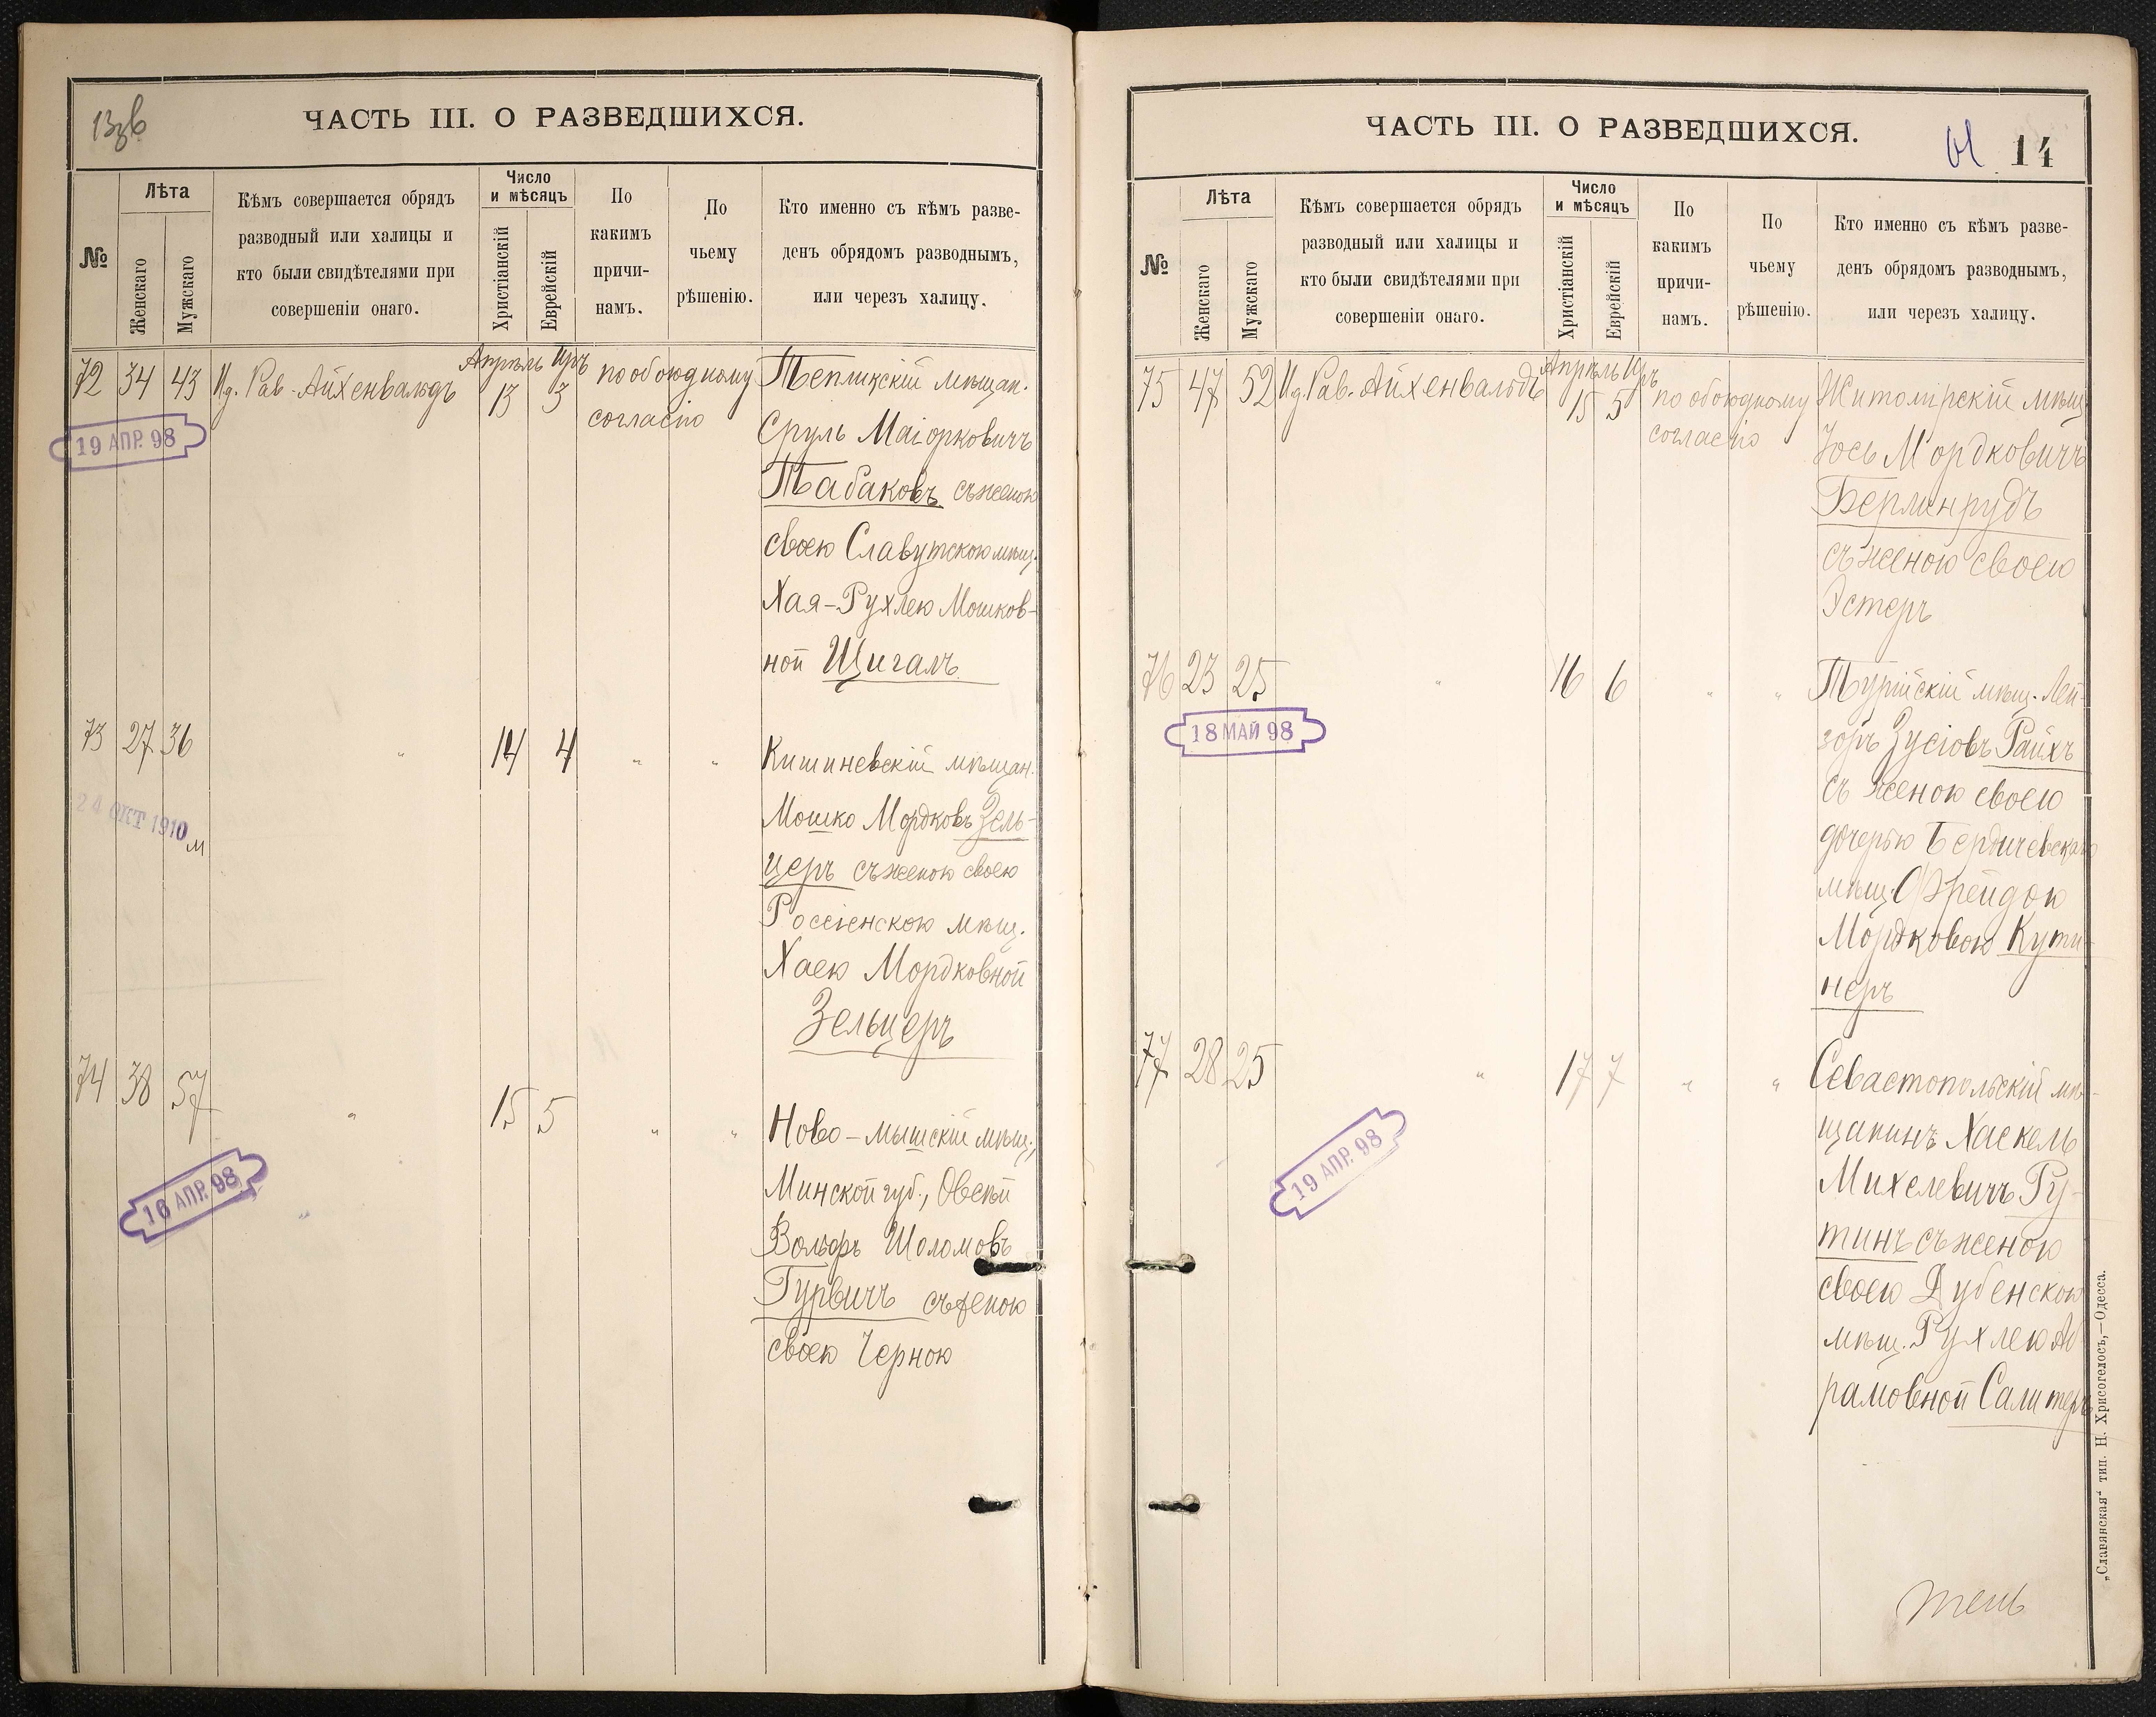 13зв
ЧАСТЬ III. О РАЗВЕДШИХСЯ.
№
Лѣта
Женскаго
Мужскаго
Кѣмъ совершается обрядъ
разводный или халицы и
кто были свидѣтелями при
совершеніи онаго.
Число
и мѣсяцъ
Христіанскій
Еврейскій
По
какимъ
причи-
намъ.
По
чьему
рѣшенію.
Кто именно съ кѣмъ разве-
денъ обрядомъ разводнымъ,
или черезъ халицу.
72 34 43 Ид. Рав. Айхенвальдъ Апрѣль Иръ 13 3 по обоюдному
согласію
Тепликскій мѣщан.
Сруль Маіорковичъ
Табаковъ съ женою
своею Славутскою мѣщ.
Хая-Рухлею Мошков-
ной Цигалъ
19 АПР. 98
73 27 36 " 14 4 " "
Кишиневскій мѣщан.
Мошко Мордковъ Зель-
церъ съ женою своею
Россіенскою мѣщ.
Хаею Мордковной
Зельцеръ
24 ОКТ 1910
м
74 38 57 " 15 5 " "
Ново-мышскій мѣщ.,
Минской губ., Овсѣй
Вольфъ Шоломовъ
Гурвичъ съ женою
своею Черною
16 АПР. 98
ЧАСТЬ III. О РАЗВЕДШИХСЯ.
14
№
Лѣта
Женскаго
Мужскаго
Кѣмъ совершается обрядъ
разводный или халицы и
кто были свидѣтелями при
совершеніи онаго.
Число
и мѣсяцъ
Христіанскій
Еврейскій
По
какимъ
причи-
намъ.
По
чьему
рѣшенію.
Кто именно съ кѣмъ разве-
денъ обрядомъ разводнымъ,
или черезъ халицу.
75 47 52 Ид. Рав. Айхенвальдъ Апрѣль Иръ 15 5 по обоюдному
согласію
Житомирскій мѣщ.
Іось Мордковичъ
Берлинрудъ
съ женою своею
Эстеръ
76 23 25 " 16 6 " "
Турійскій мѣщ. Лей-
зоръ Зусіовъ Райхъ
съ женою своею
дочерью Бердичевскаго
мѣщ. Фрейдою
Мордковою Кути-
неръ
18 МАЙ 98
77 28 25 " 17 7 " "
Севастопольскій мѣ-
щанинъ Хаскель
Михелевичъ Ру-
тинъ съ женою
своею Дубенскою
мѣщ. Рухлею Аб
рамовной Салитеръ
19 АПР. 98
„Славянская“ тип. Н. Хрисогелосъ,—Одесса.